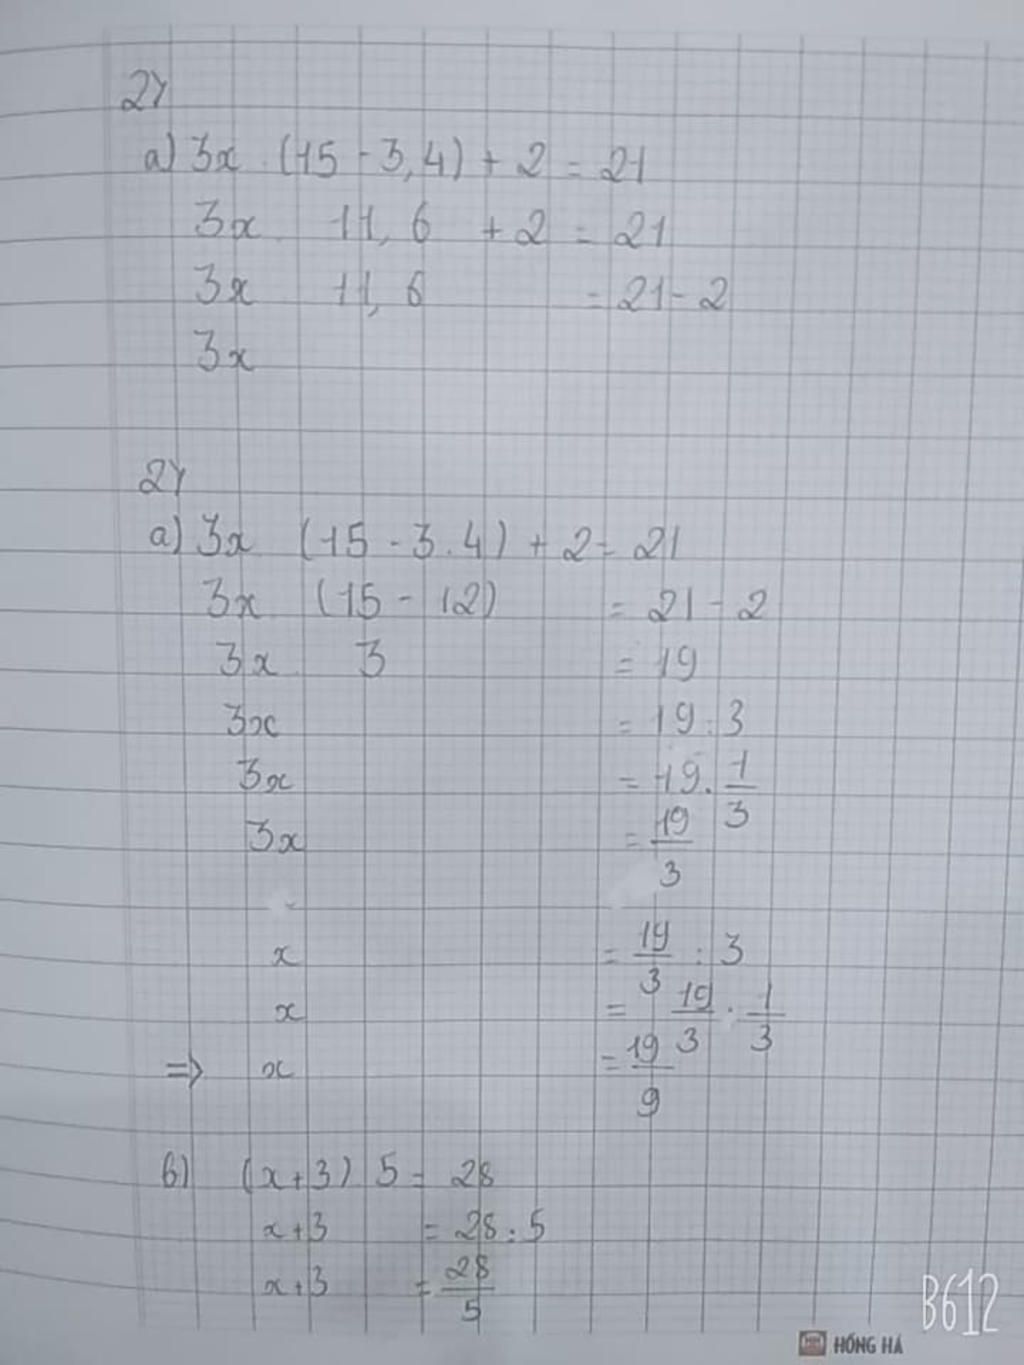 2)
a) 3x (15 - 3,4) + 2 = 21
3x 11,6 + 2 = 21
3x 11,6 = 21 - 2
3x
2)
a) 3x (15 - 3.4) + 2 = 21
3x (15 - 12) = 21 - 2
3x 3 = 19
3x = 19 : 3
3x = 19 . 1/3
3x = 19/3
x = 19/3 : 3
x = 19/3 . 1/3
=> x = 19/9
b) (x + 3) 5 = 28
x + 3 = 28 : 5
x + 3 = 28/5
B612
HỒNG HÀ